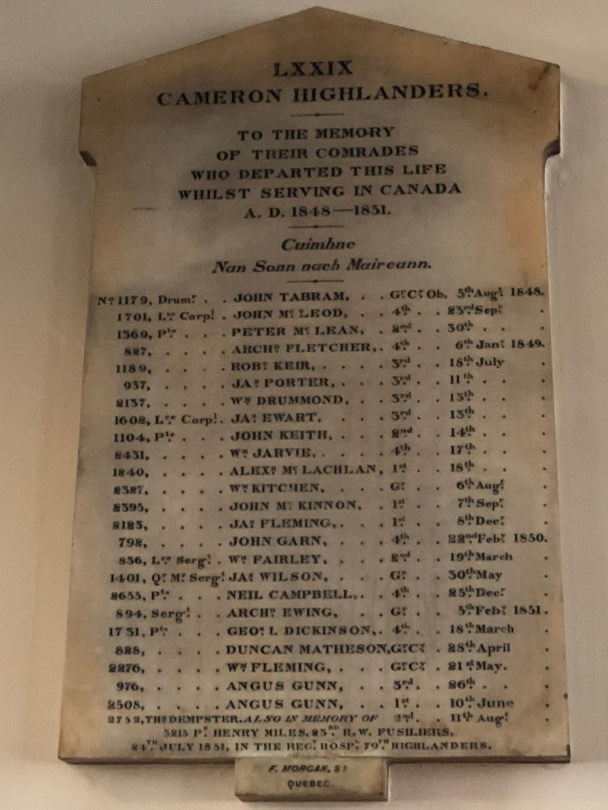 LXXIX
CAMERON HIGHLANDERS.
TO THE MEMORY
OF THEIR COMRADES
WHO DEPARTED THIS LIFE
WHILST SERVING IN CANADA
A. D. 1848—1851.
Cuimhne
Nan Sonn nach Maireann.
No. 1179, Drumr. . . JOHN TABRAM, . . Gr. Cy. Ob. 5th Augt. 1848.
1701, Lce Corpl. . JOHN Mc. LEOD, . . 4th . . 23rd Sepr. .
1369, Pte. . . . PETER Mc. LEAN, . . 2nd . . 30th . . .
827, . . . . ARCHd. FLETCHER, . . 4th . . 6th Jany. 1849.
1189, . . . . ROBt. KEIR, . . . . 3rd . . 18th July .
937, . . . . JAs. PORTER, . . . 3rd . . 11th . . .
2137, . . . . Wm. DRUMMOND, . . 3rd . . 13th . . .
1608, Lce Corpl. . JAs. EWART, . . . 3rd . . 13th . . .
1104, Pte. . . . JOHN KEITH, . . . 2nd . . 14th . . .
2431, . . . . Wm. JARVIE, . . . 4th . . 17th . . .
1240, . . . . ALEXr. Mc. LACHLAN, 1st . . 18th . . .
2387, . . . . Wm. KITCHEN, . . . Gr. . . 6th Augt. .
2395, . . . . JOHN Mc. KINNON, . 1st . . 7th Sepr. .
2123, . . . . JAs. FLEMING, . . . 1st . . 8th Decr. .
798, . . . . JOHN GARN, . . . . 4th . . 22nd Feby. 1850.
836, Lce Sergt. . Wm. FAIRLEY, . . . 2nd . . 19th March .
1401, Qr. Mr. Sergt. JAs. WILSON, . . . Gr. . . 30th May .
2655, Pte. . . . NEIL CAMPBELL, . . 4th . . 25th Decr. .
894, Sergt. . . ARCHd. EWING, . . . Gr. . . 5th Feby. 1851.
1731, Pte. . . . GEOe. L DICKINSON, . 4th . . 18th March .
828, . . . . DUNCAN MATHESON, Gr. Cy. . 28th April .
2276, . . . . Wm. FLEMING, . . . Gr. Cy. . 21st May. .
976, . . . . ANGUS GUNN, . . . 3rd . . 26th . . .
2508, . . . . ANGUS GUNN, . . . 1st . . 10th June .
2752, THos. DEMPSTER. ALSO IN MEMORY OF 2nd . 11th Augt. .
3215 Pt. HENRY MILES, 23RD R. W. FUSILIERS,
24TH JULY 1851, IN THE REGl. HOSPl. 79TH HIGHLANDERS.
F. MORGAN, Sc.
QUEBEC